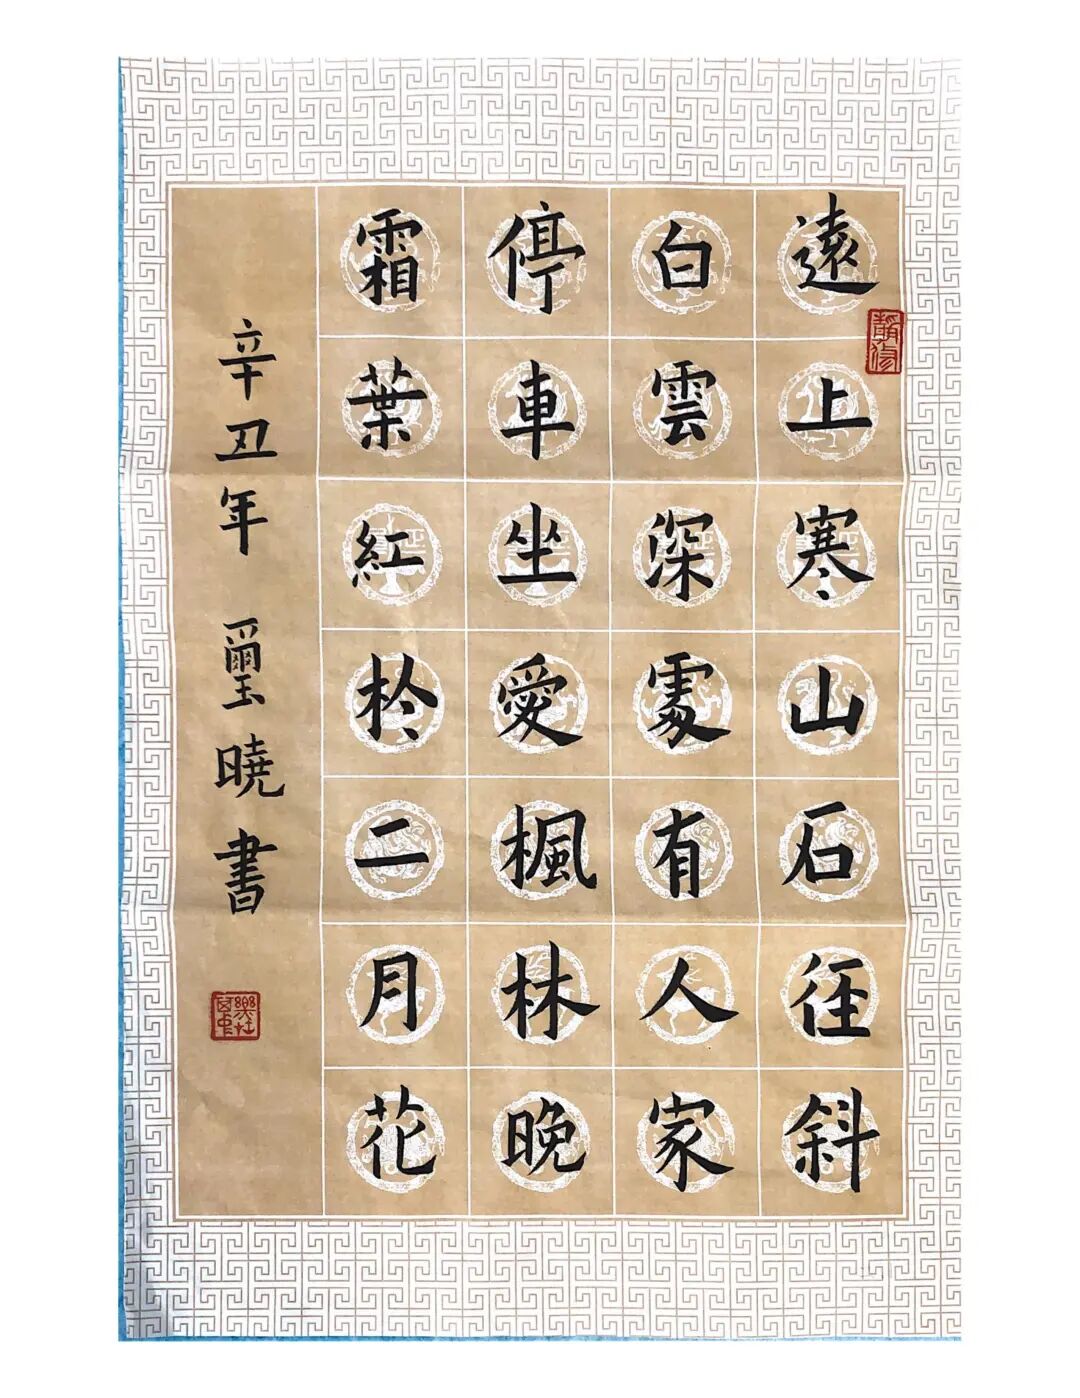 遠上寒山石径斜
白雲深處有人家
停車坐愛楓林晚
霜葉紅於二月花
辛丑年 璽曉書
靜修
樂在其中